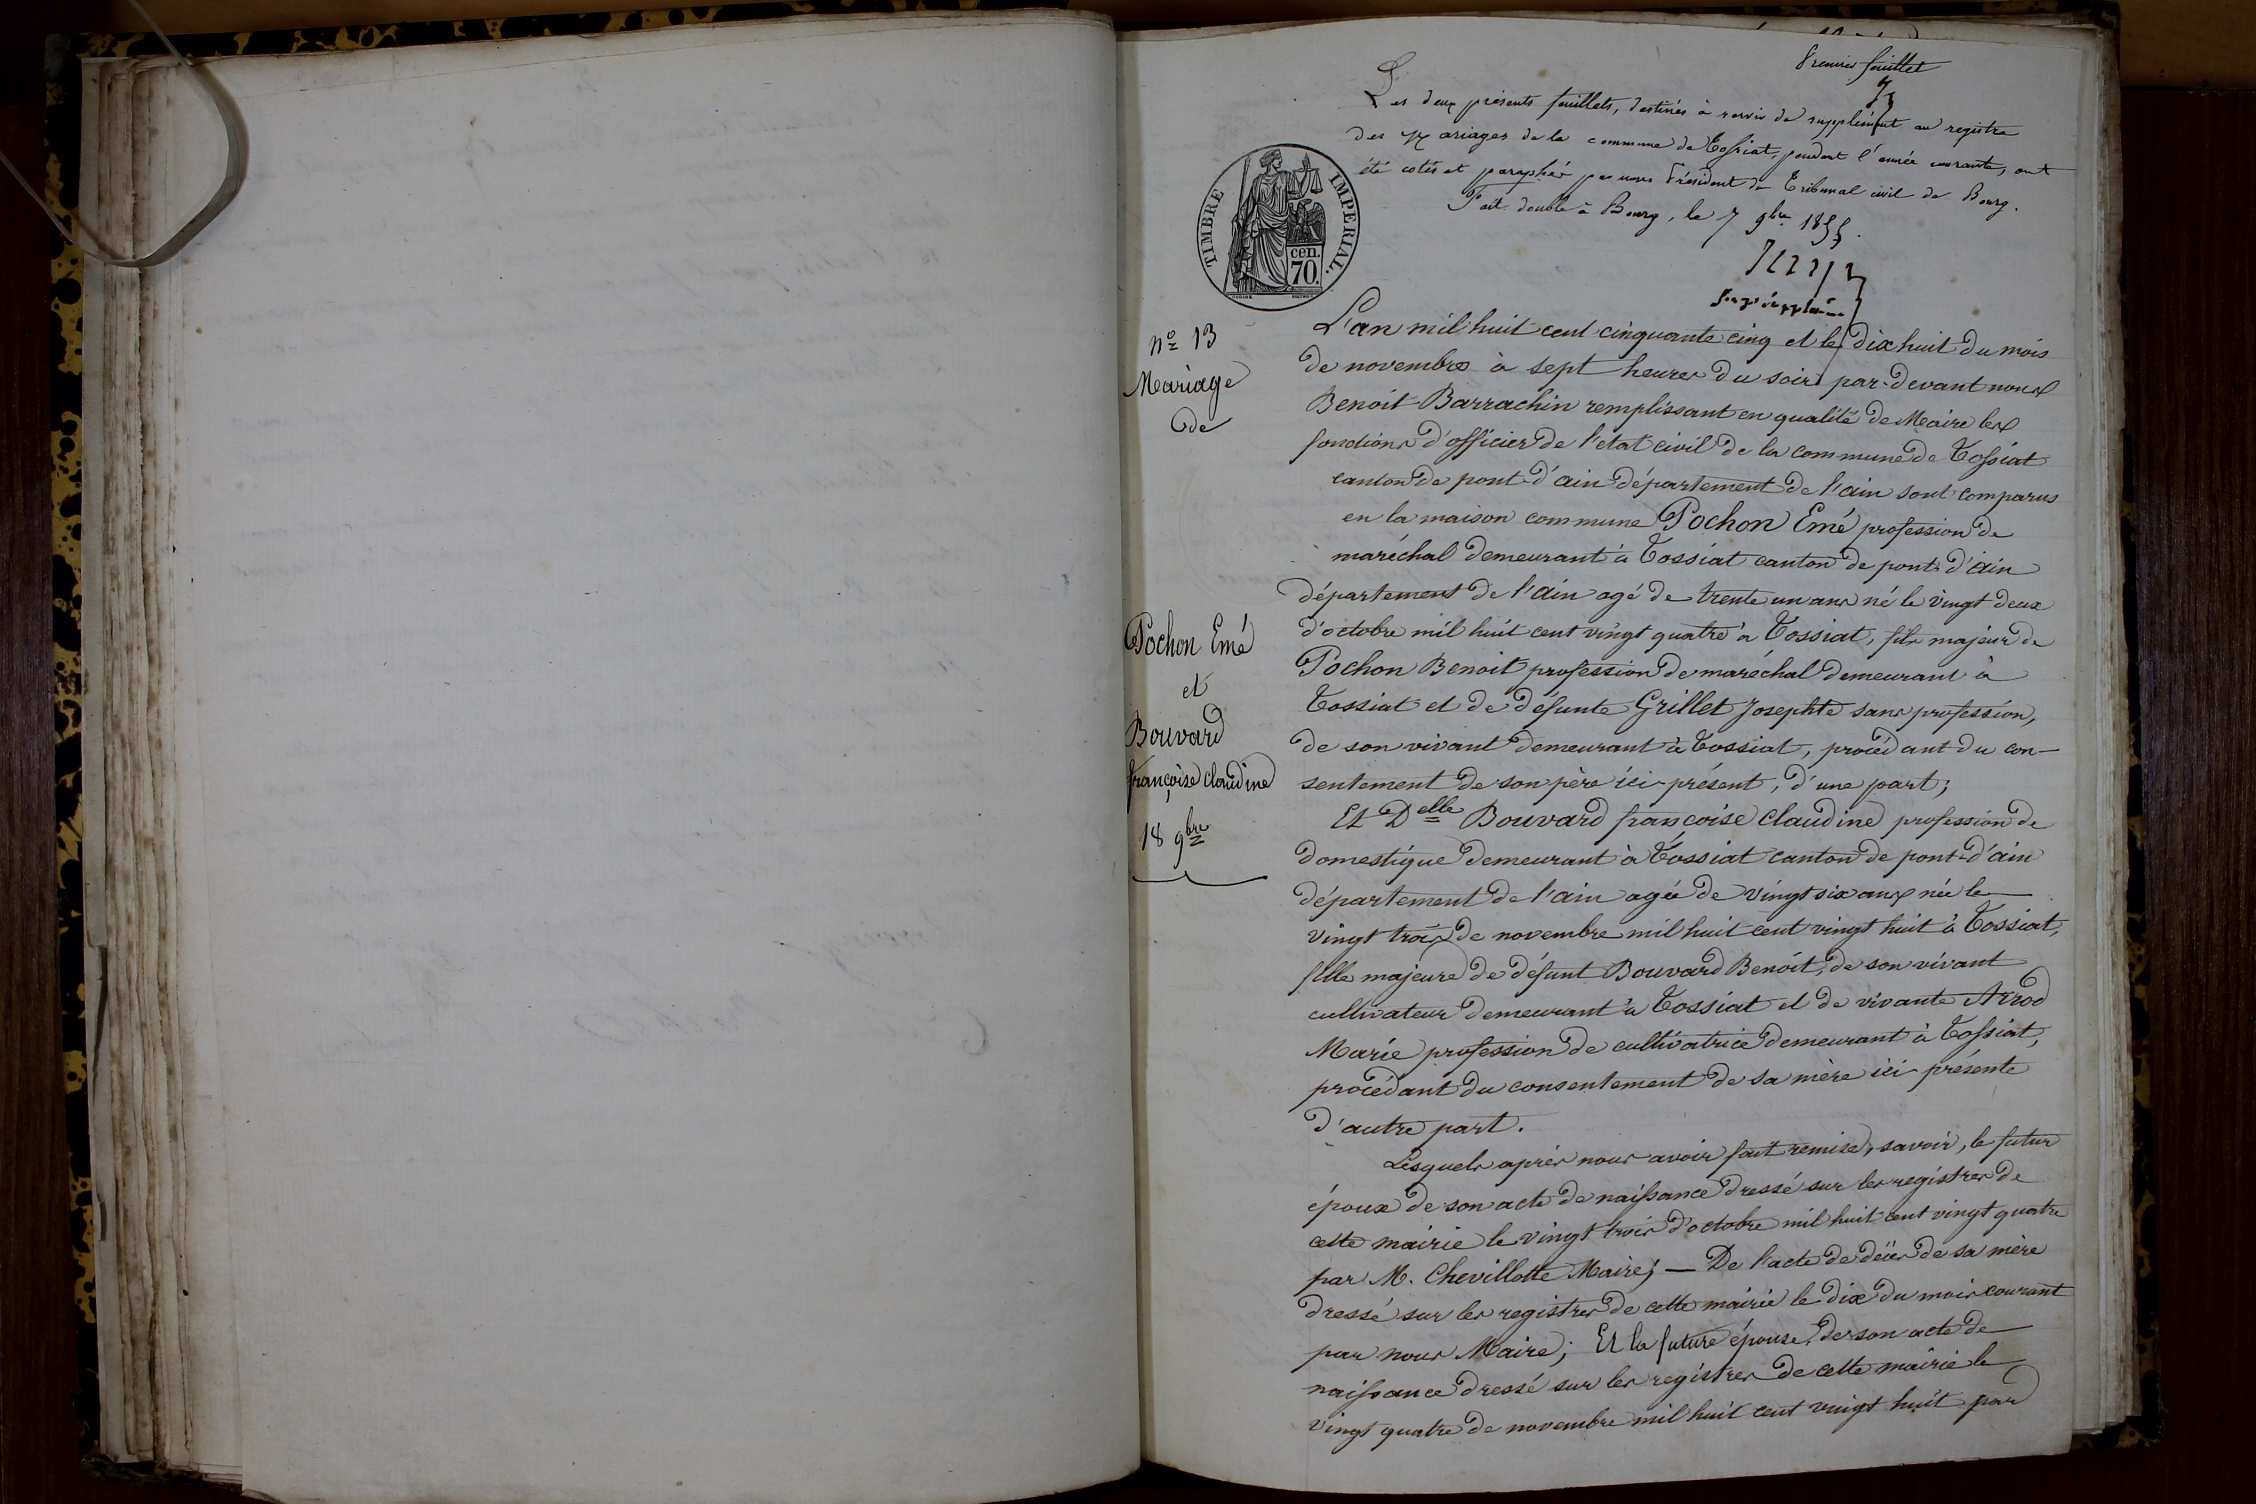 Premier feuillet
Les deux présents feuillets, destinés à servir de supplément au registre
des Mariages de la commune de Tossiat, pendant l'année courante, ont
été cotés et paraphés par nous Président du Tribunal civil de Bourg.
Fait double à Bourg, le 7 9bre 1855.
TIMBRE IMPERIAL.
cen.
70.
No 13
Mariage
de
Pochon Emé
et
Bouvard
françoise claudine
18 9bre
L'an mil huit cent cinquante cinq et le dix huit du mois
de novembre à sept heures du soir par-devant nous
Benoit Barrachin remplissant en qualité de Maire les
fonctions d'officier de l'etat civil de la commune de Tossiat
canton de pont-d'ain département de l'ain sont comparus
en la maison commune Pochon Emé profession de
maréchal demeurant à Tossiat canton de pont-d'ain
département de l'ain agé de trente un ans né le vingt deux
d'octobre mil huit cent vingt quatre à Tossiat, fils majeur de
Pochon Benoit profession de maréchal demeurant à
Tossiat et de défunte Grillet Josephte sans profession,
de son vivant demeurant à Tossiat, procédant du con-
sentement de son père ici-présent, d'une part;
Et Delle Bouvard françoise claudine profession de
domestique demeurant à Tossiat canton de pont-d'ain
département de l'ain agée de vingt six ans née le
vingt trois de novembre mil huit cent vingt huit à Tossiat,
fille majeure de défunt Bouvard Benoit, de son vivant
cultivateur demeurant à Tossiat et de vivante Airod
Marie profession de cultivatrice demeurant à Tossiat,
procédant du consentement de sa mère ici-présente
d'autre part.
Lesquels après nous avoir fait remise, savoir, le futur
époux de son acte de naissance dressé sur les registres de
cette mairie le vingt trois d'octobre mil huit cent vingt quatre
par M. Chevillotte Maire; — De l'acte de décès de sa mère
dressé sur les registres de cette mairie le dix du mois courant
par nous Maire; Et la future épouse, de son acte de
naissance dressé sur les registres de cette mairie le
vingt quatre de novembre mil huit cent vingt huit par